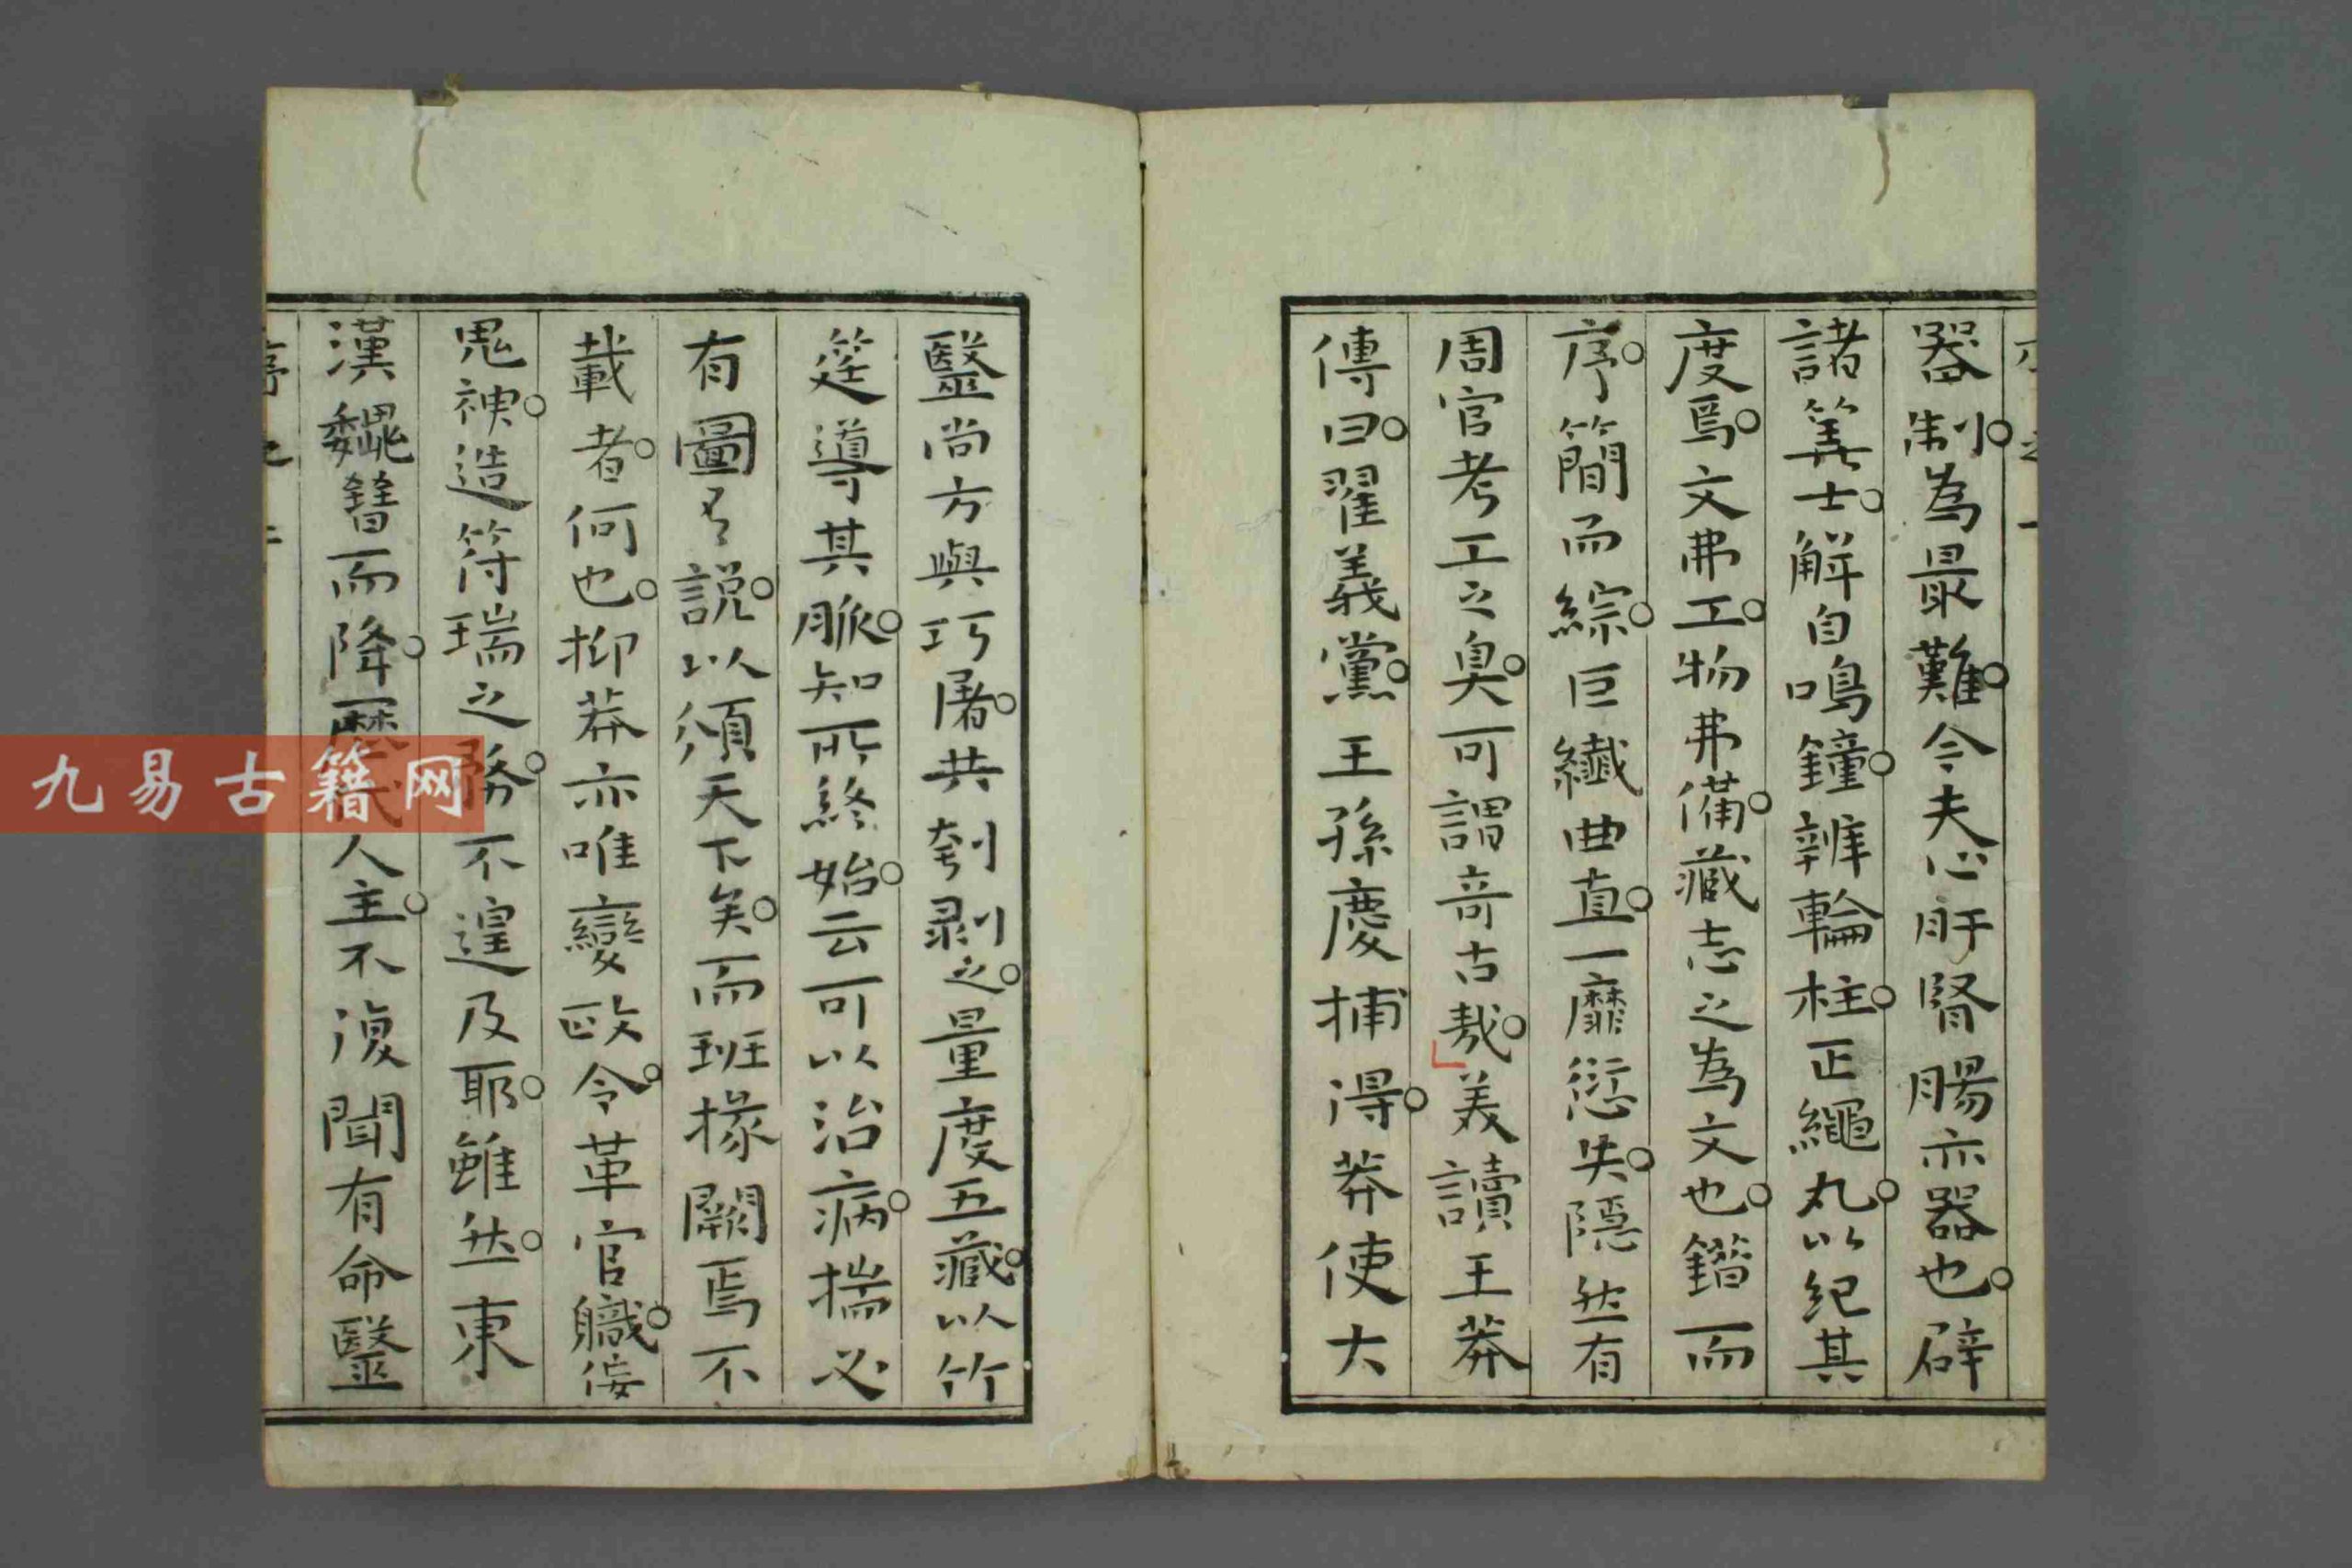 器制為最難今夫心肝腎腸亦器也辟
諸筭士解自鳴鐘辨輪柱正繩丸以紀其
度焉文弗工物弗備藏志之為文也鐕而
序簡而綜巨纖曲直一靡愆失隱然有
周官考工之臭可謂奇古哉美讀王莽
傳曰翟義黨王孫慶捕得莽使大
毉尚方與巧屠共刳剥之量度五藏以竹
筳導其脈知所終始云可以治病揣必
有圖有說以須天下矣而班掾闕焉不
載者何也抑莽亦唯變政令革官職佞
鬼神造符瑞之務不遑及耶雖然東
漢魏晉而降歷代人主不復聞有命毉
九易古籍网